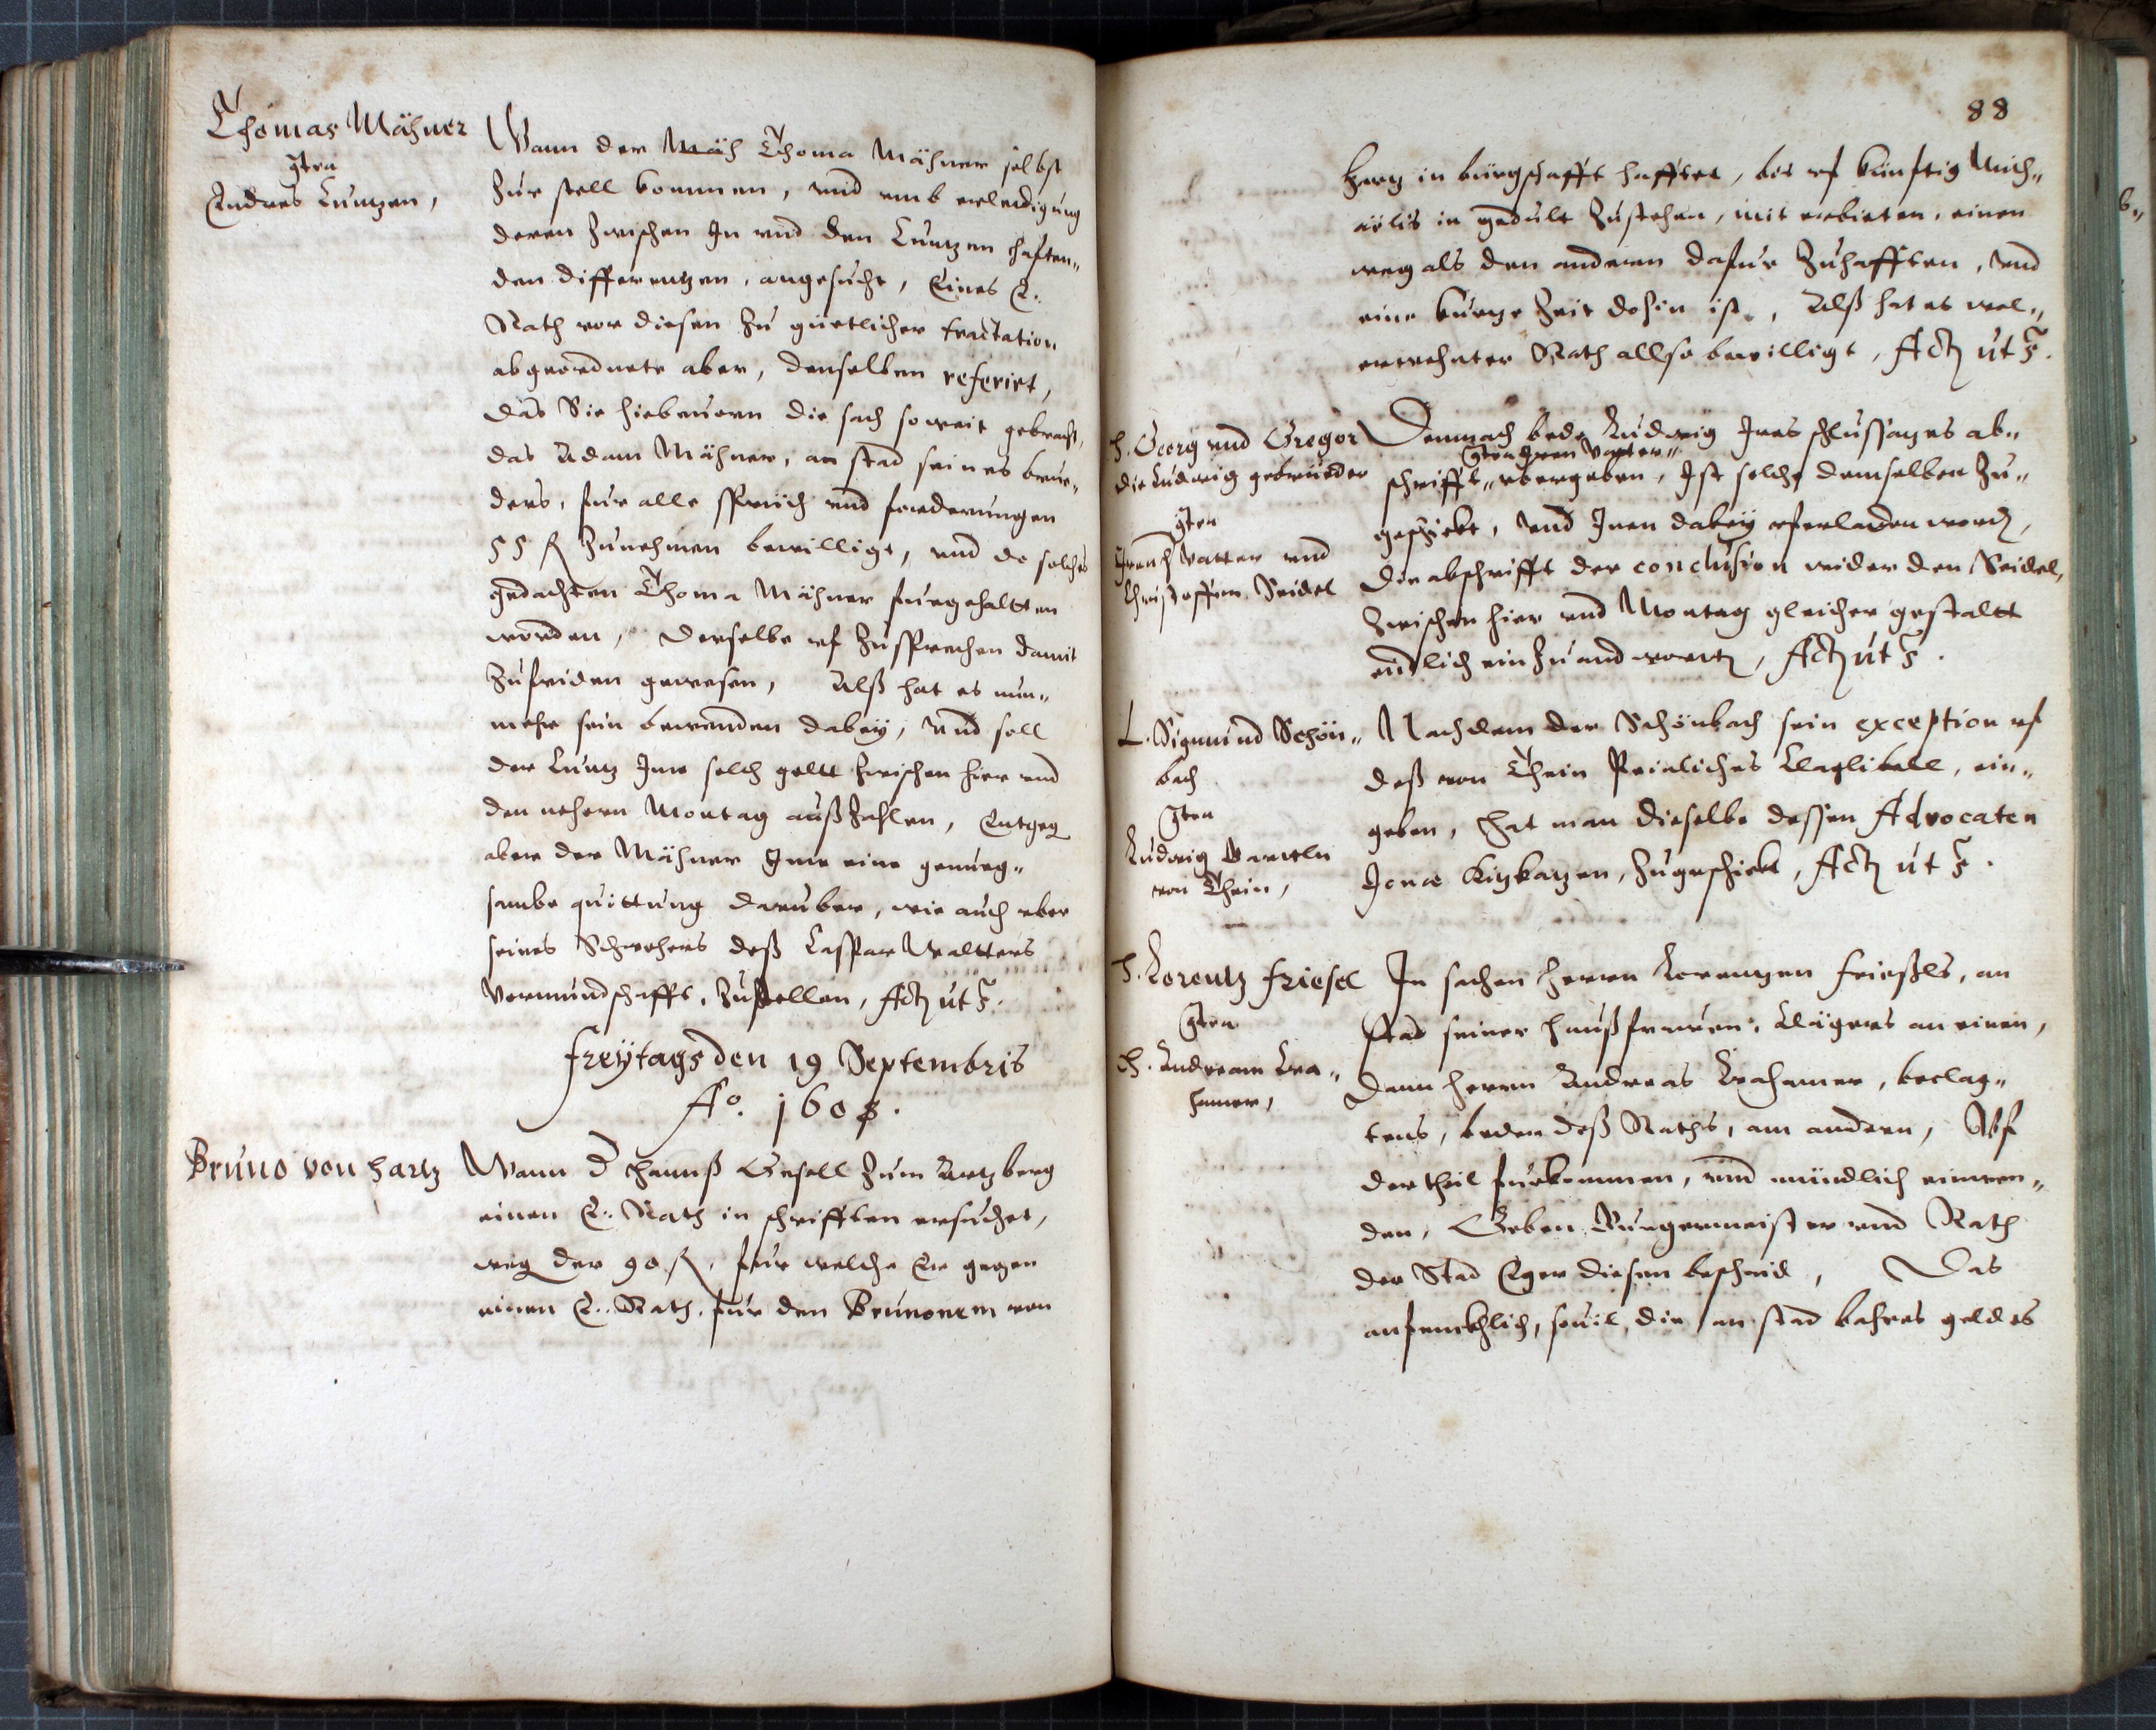 Thomas Mähner
gten
Andres Luntzen,
Wann der Mäh Thoma Mähner selbst
Zur stell kommen, vnd vmb erledigung
deren Zwischen Jn vnd den Luntzen hafften„
den differentzen, angesucht, Eines E.
Rath vor diesen Zu güetlicher tractation
abgeordnete aber, denselben referirt,
das Sie hiebeuorn die sach soweit gebracht,
das Adam Mähner, an stad seines brue„
ders, fur alle spruch vnd forderungen
55 fl Zunehmen bewilligt, vnd do solches
gedachten Thoma Mähner furgehaltten
worden, derselbe vf Zusprechen damit
Zufriden gewesen, Alß hat es nun„
mehr sein bewenden dabey, vnd soll
der Luntz Jme solch geltt Zwischen hier vnd
den nehern Montag außZahlen, Entgeg
aber der Mähner Jme eine genueg„
sambe quittung daruber, wie auch vber
seines Schwehers deß Caspar Waltters
Vormundschafft, Zustellen, Actz ut s.
Freytags den 19 Septembris
Ao. 1608.
Bruno von Hartz
Wann d Hannß Gesell Zum Artzberg
einen E. Rath in schrifften ersuchet,
weg der 90 fl, fur welche Er gegen
einen E. Rath, fur den Brunonem von
88
Harz in bürgschafft hafftet, bis vf künftig Mich„
aelis in gedult Zustehen, mit erbieten, einen
weg als den anderen dafur Zuhafften, vnd
eine kurze Zeit dohin ist, Alß hat es wol„
erwehnter Rath allso bewilligt, Actz ut s.
H. Georg vnd Gregor
die Ludwig gebrüeder
gten
Jren Vatter vnd
Christoffen Seidel
Demnach bede Ludwig Jres schlussatzes ab„
gten Jren Vatter„
schrifft„ vbergeben, Jst solche demselben Zu„
geschickt, vnd Jnen dabey vferladen wordz,
die abschrifft der conclusion wider den Seidel,
Zwischen hier vnd Montag gleicher gestaltt
endlich ein Zu andwortz, Actz ut s.
L. Sigmund Schön„
bach
gten
Ludwig
von Thein,
Nachdem der Schönbach sein exception vf
deß von Thein Peinliches Claglibell, ein„
geben, Hat man dieselbe dessen Advocaten
Jonæ Kizkatzen, Zugeschickt, Actz ut s.
H. Lorentz Friesel
gten
H. Andream Cra„
hamer,
In sachen Herrn Lorentzen Frießls, an
stad seiner Haußfrauen, Clägers an einen,
dann Herrn Andreas Crahamer, beclag„
tens, beden deß Raths, am andern, Vf
der theil furkommen, vnd mündlich einwen„
den, Geben Burgermeister vnd Rath
der Stad Eger diesen bescheid, Das
anfencklich, souil, die an stad bahres geldes